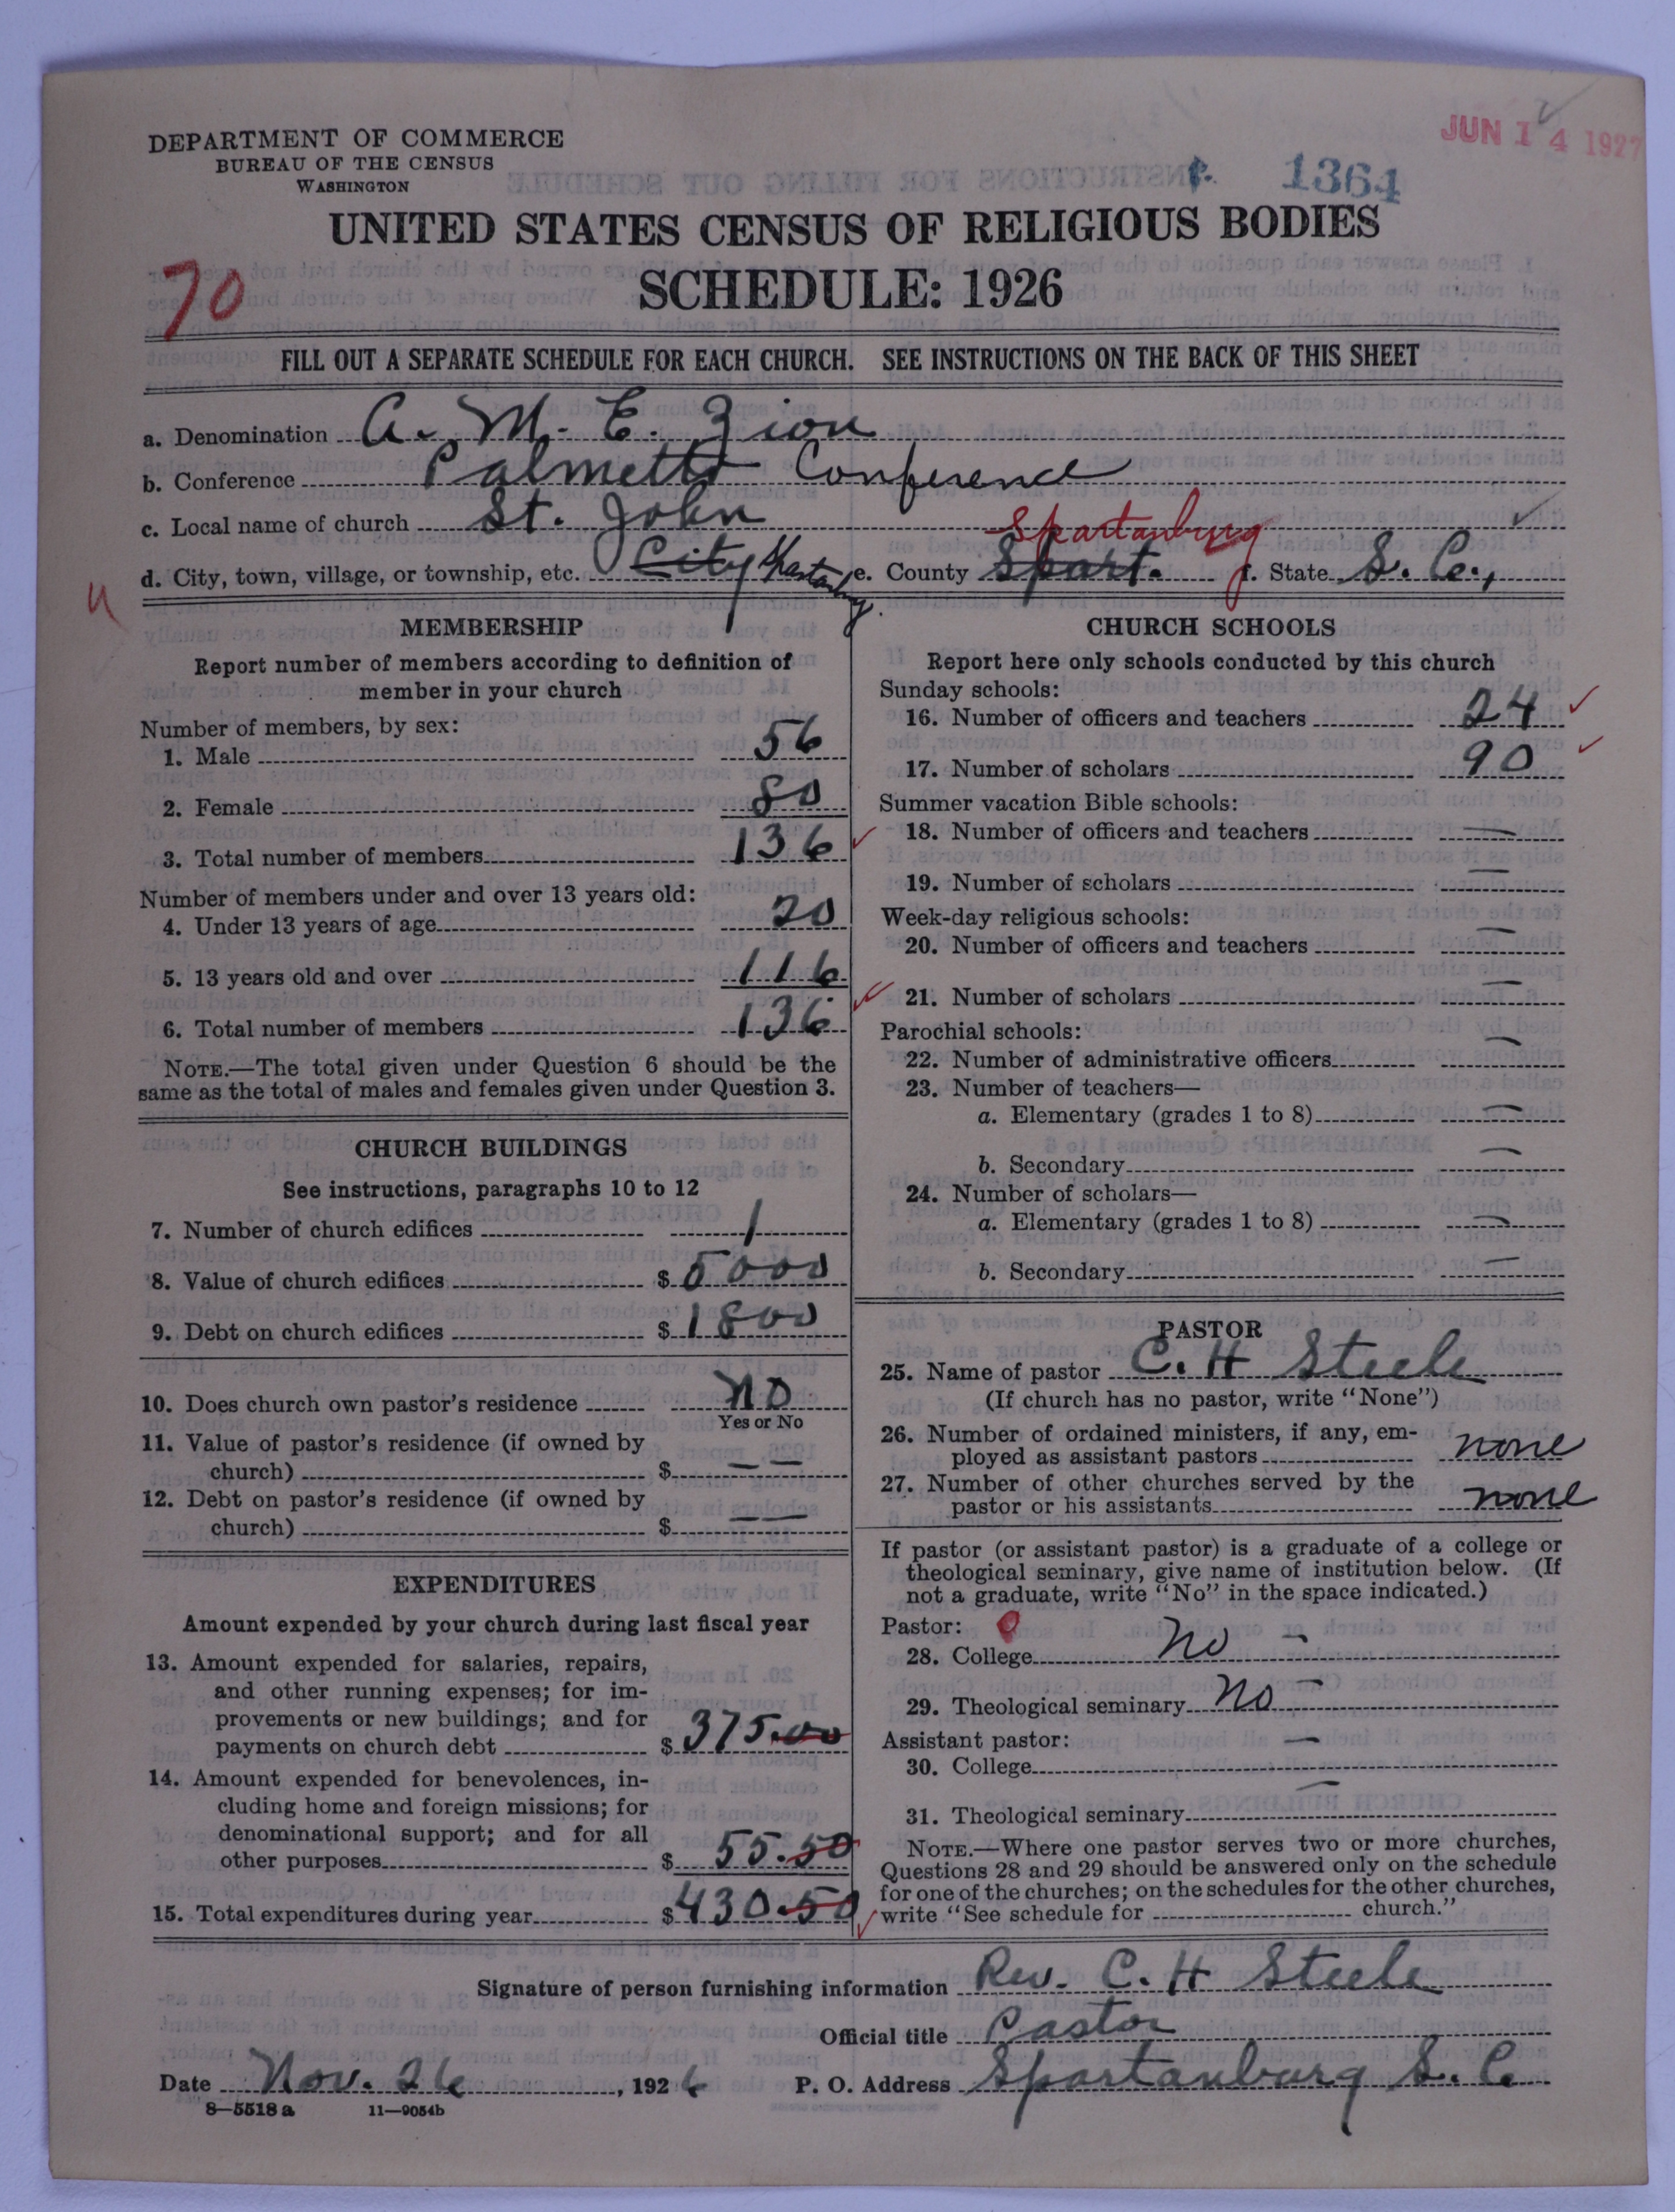 DEPARTMENT OF COMMERCE
BUREAU OF THE CENSUS
WASHINGTON
JUN 14 1927
1364
UNITED STATES CENSUS OF RELIGIOUS BODIES
SCHEDULE: 1926
70
FILL OUT A SEPARATE SCHEDULE FOR EACH CHURCH. SEE INSTRUCTIONS ON THE BACK OF THIS SHEET
a. Denomination A. M. E. Zion
b. Conference Palmetto Conference
c. Local name of church St. John
Spartanburg
d. City, town, village, or township, etc. City Spartanburg. e. County Spart. f. State S. C.,
MEMBERSHIP
Report number of members according to definition of
member in your church
Number of members, by sex:
1. Male 56
2. Female 80
3. Total number of members 136
Number of members under and over 13 years old:
4. Under 13 years of age 20
5. 13 years old and over 116
6. Total number of members 136
NOTE.—The total given under Question 6 should be the
same as the total of males and females given under Question 3.
CHURCH BUILDINGS
See instructions, paragraphs 10 to 12
7. Number of church edifices 1
8. Value of church edifices $ 5000
9. Debt on church edifices $ 1800
10. Does church own pastor's residence no
Yes or No
11. Value of pastor's residence (if owned by
church) $ — —
12. Debt on pastor's residence (if owned by
church) $ — —
EXPENDITURES
Amount expended by your church during last fiscal year
13. Amount expended for salaries, repairs,
and other running expenses; for im-
provements or new buildings; and for
payments on church debt $ 375.00
14. Amount expended for benevolences, in-
cluding home and foreign missions; for
denominational support; and for all
other purposes $ 55.50
15. Total expenditures during year $ 430.50
CHURCH SCHOOLS
Report here only schools conducted by this church
Sunday schools:
16. Number of officers and teachers 24
17. Number of scholars 90
Summer vacation Bible schools:
18. Number of officers and teachers —
19. Number of scholars —
Week-day religious schools:
20. Number of officers and teachers —
21. Number of scholars —
Parochial schools:
22. Number of administrative officers —
23. Number of teachers—
a. Elementary (grades 1 to 8) —
b. Secondary —
24. Number of scholars—
a. Elementary (grades 1 to 8) —
b. Secondary —
PASTOR
25. Name of pastor C. H Steele
(If church has no pastor, write "None")
26. Number of ordained ministers, if any, em-
ployed as assistant pastors none
27. Number of other churches served by the
pastor or his assistants none
If pastor (or assistant pastor) is a graduate of a college or
theological seminary, give name of institution below. (If
not a graduate, write "No" in the space indicated.)
Pastor: 0
28. College no —
29. Theological seminary no —
Assistant pastor:
30. College —
31. Theological seminary —
NOTE.—Where one pastor serves two or more churches,
Questions 28 and 29 should be answered only on the schedule
for one of the churches; on the schedules for the other churches,
write "See schedule for church."
Signature of person furnishing information Rev. C. H Steele
Official title Pastor
Date Nov. 26, 1926 P. O. Address Spartanburg S. C.
8—5518 a 11—9054b